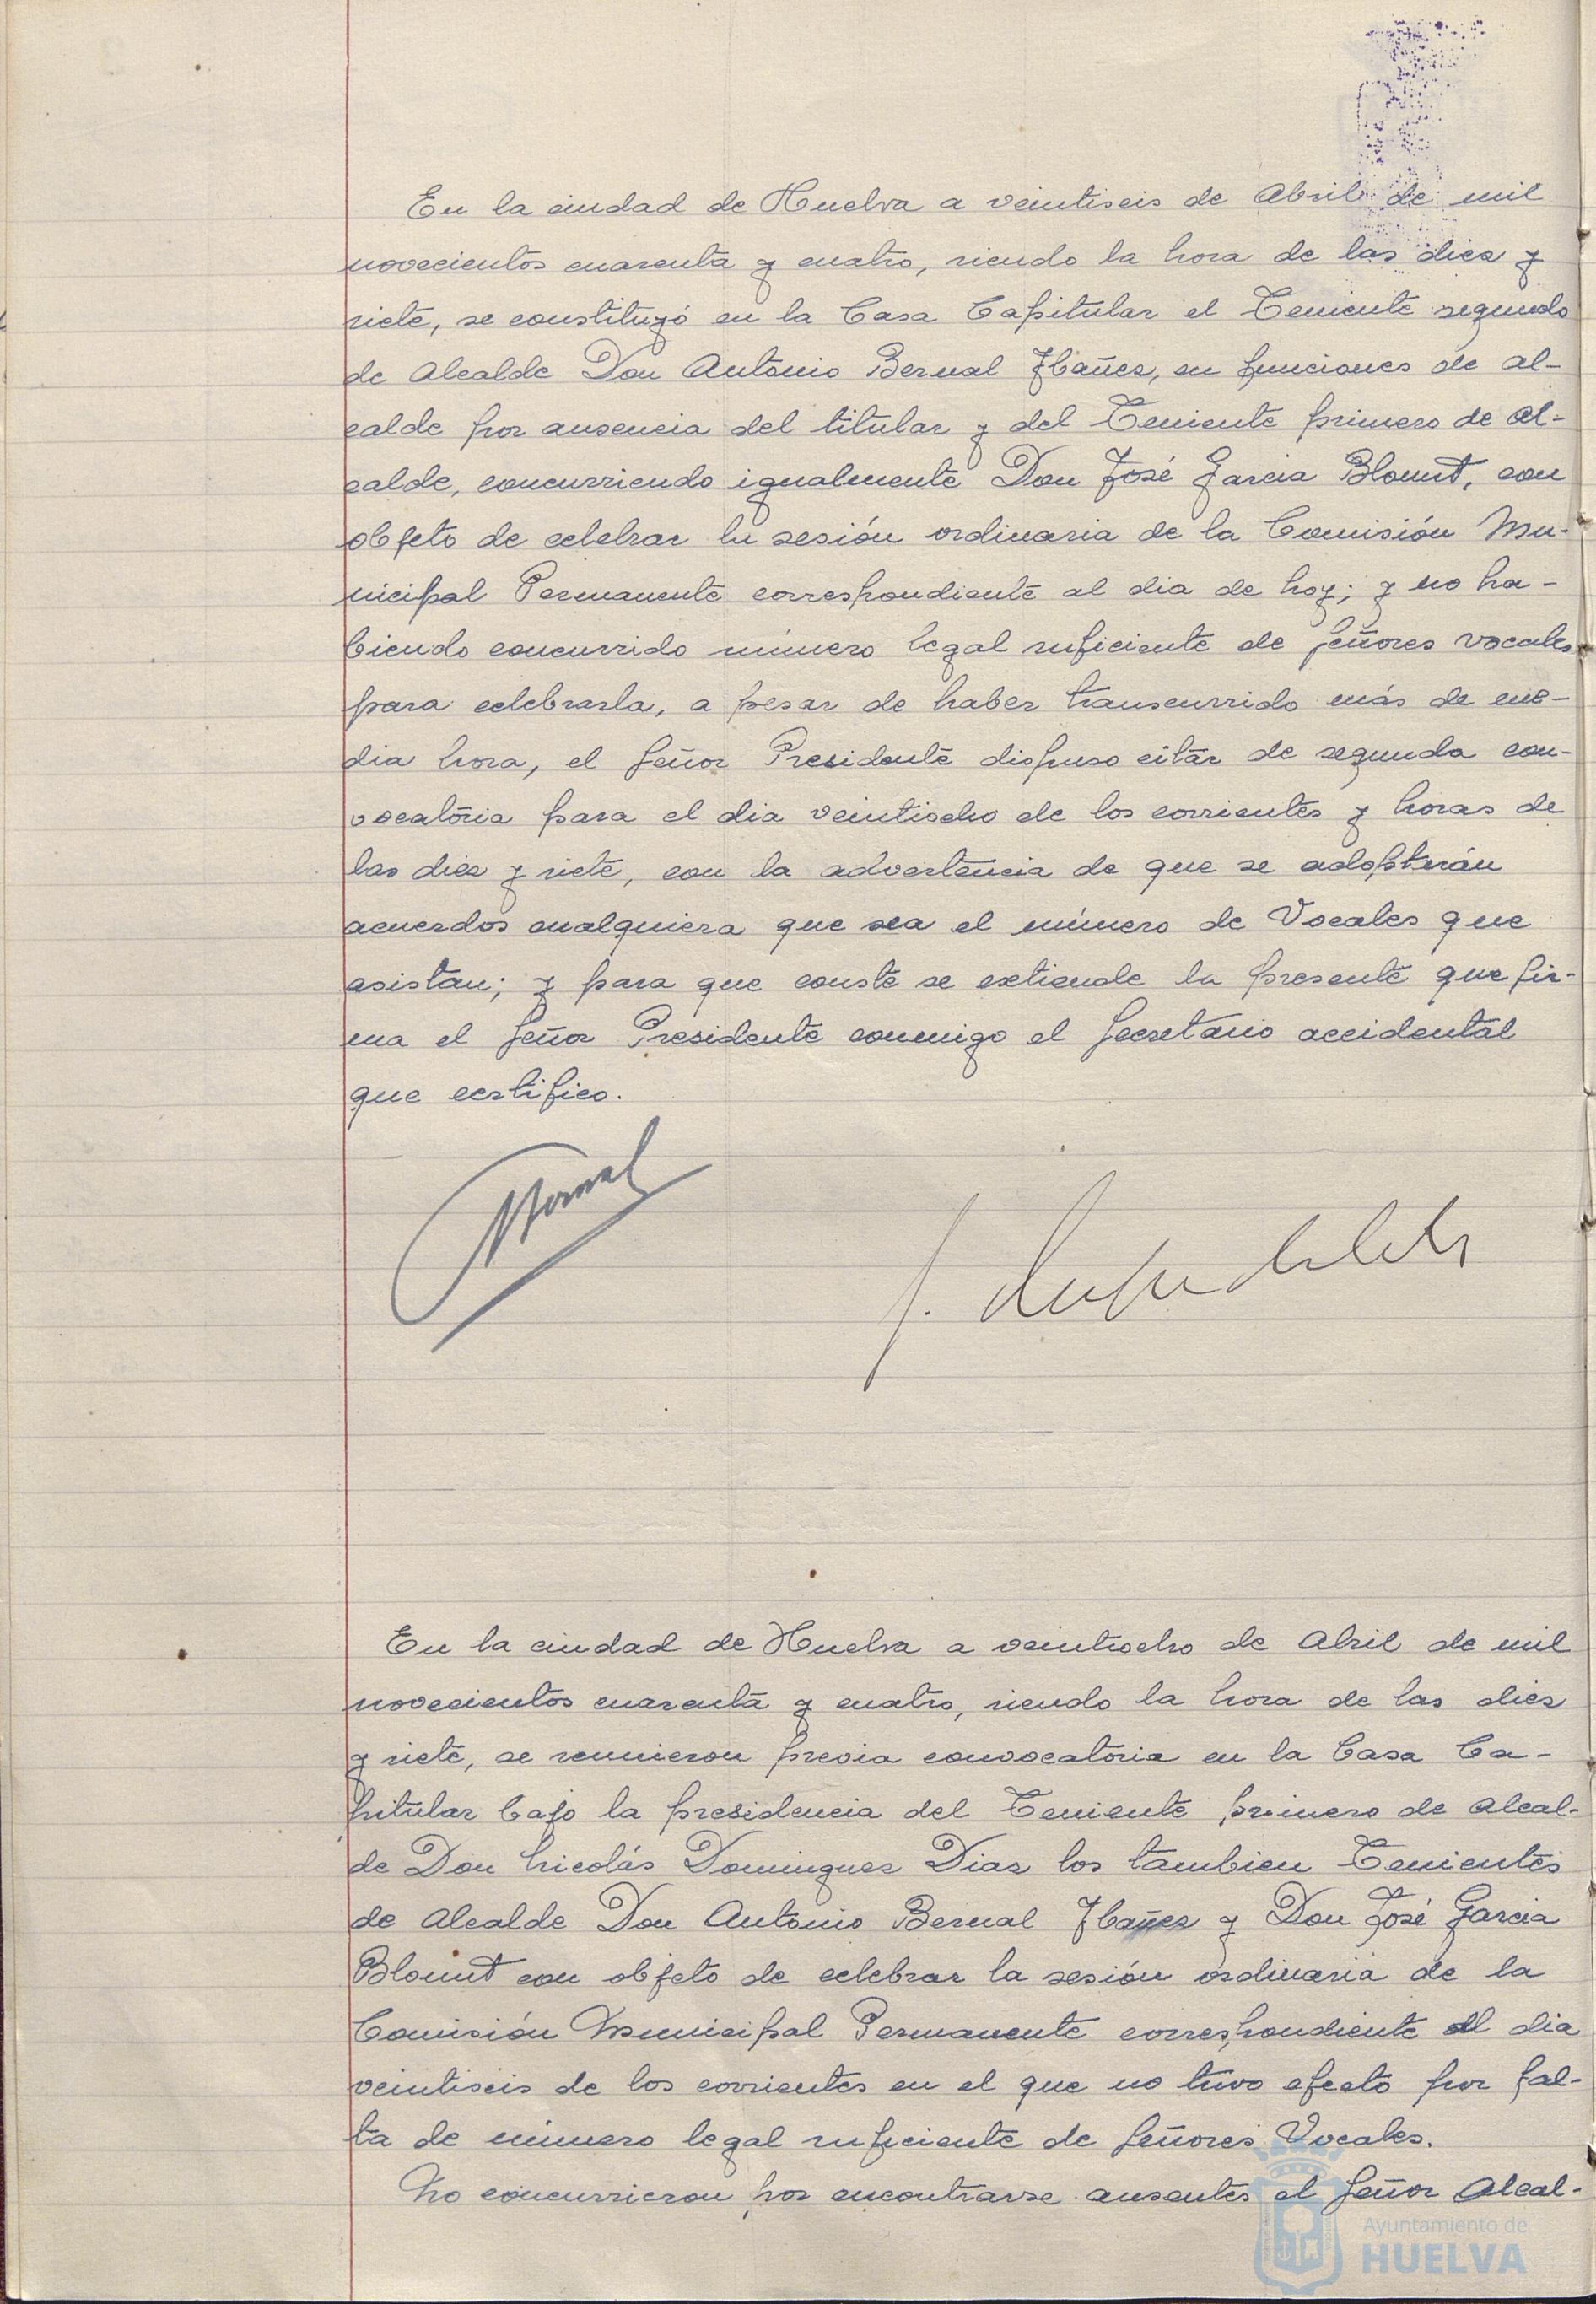 En la ciudad de Huelva a veintiseis de Abril de mil
novecientos cuarenta y cuatro, siendo la hora de las diez y
siete, se constituyó en la Casa Capitular el Teniente segundo
de Alcalde Don Antonio Bernal Ibañez, en funciones de Al-
calde por ausencia del titular y del Teniente primero de Al-
calde, concurriendo igualmente Don José Garcia Blount, con
objeto de celebrar la sesión ordinaria de la Comisión Mu-
nicipal Permanente correspondiente al dia de hoy; y no ha-
biendo concurrido número legal suficiente de señores vocales
para celebrarla, a pesar de haber transcurrido más de me-
dia hora, el Señor Presidente dispuso citar de segunda con-
vocatoria para el dia veintiocho de los corrientes y horas de
las diez y siete, con la advertencia de que se adoptarán
acuerdos cualquiera que sea el número de Vocales que
asistan; y para que conste se extiende la presente que fir-
ma el Señor Presidente conmigo el Secretario accidental
que certifico.
Bernal
En la ciudad de Huelva a veintiocho de Abril de mil
novecientos cuarenta y cuatro, siendo la hora de las diez
y siete, se reunieron previa convocatoria en la Casa Ca-
pitular bajo la presidencia del Teniente primero de Alcal-
de Don Nicolás Dominguez Diaz los tambien Tenientes
de Alcalde Don Antonio Bernal Ibañez y Don José Garcia
Blount con objeto de celebrar la sesión ordinaria de la
Comisión Municipal Permanente correspondiente al dia
veintiseis de los corrientes en el que no tuvo efecto por fal-
ta de número legal suficiente de Señores Vocales.
No concurrieron por encontrarse ausentes el Señor Alcal-
Ayuntamiento de
HUELVA